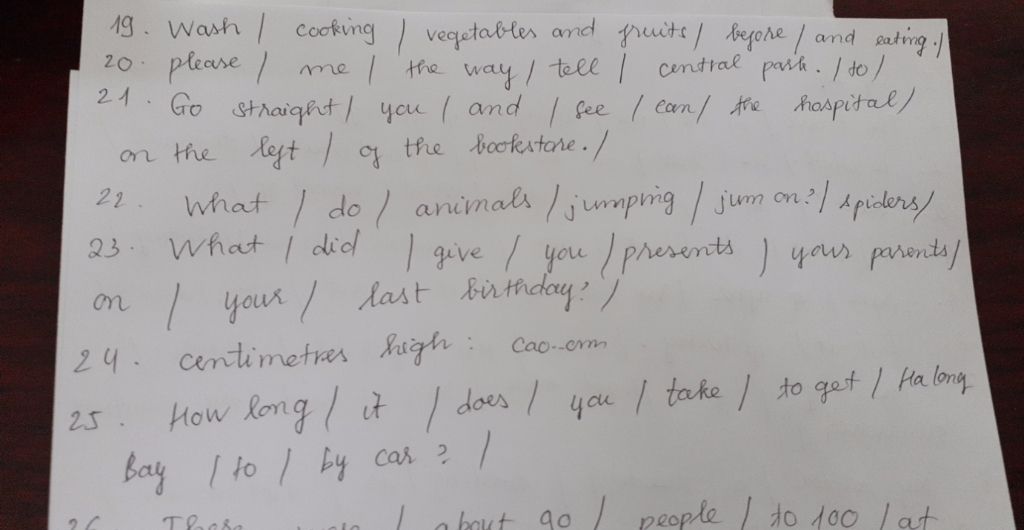 19. Wash / cooking / vegetables and fruits / before / and eating. /
20. please / me / the way / tell / central park. / to /
21. Go straight / you / and / see / can / the hospital /
on the left / of the bookstore. /
22. What / do / animals / jumping / jum on? / spiders /
23. What / did / give / you / presents / your parents /
on / your / last birthday? /
24. centimetres high: cao..cm
25. How long / it / does / you / take / to get / Ha long
Bay / to / by car ? /
26. There / about 90 / people / to 100 / at